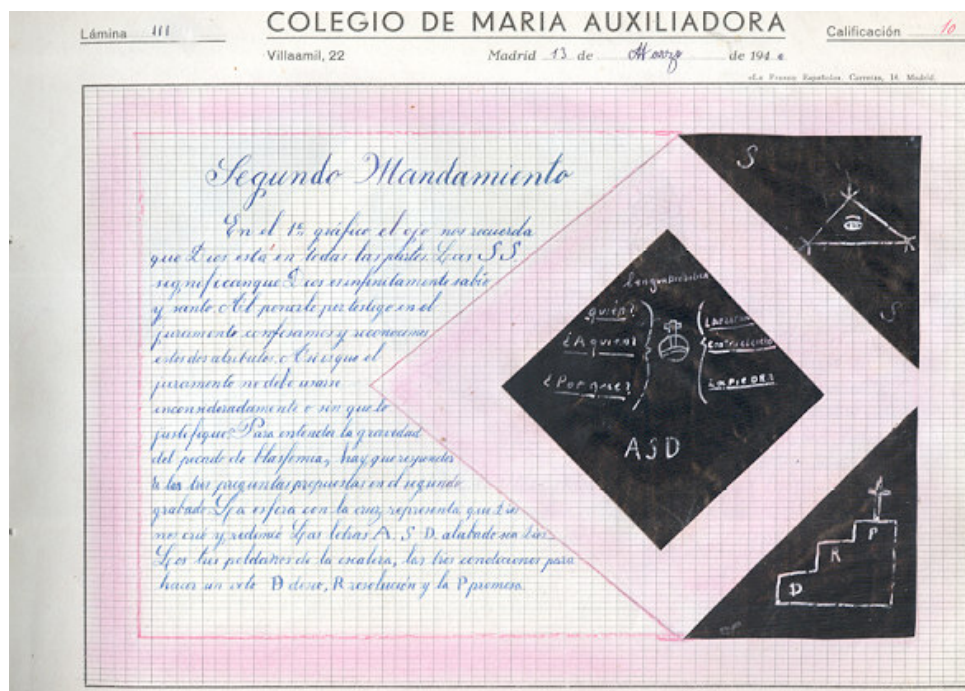 Lámina III
COLEGIO DE MARIA AUXILIADORA
Calificación 10
Villaamil, 22
Madrid 13 de Marzo de 194
«La Franco Española. Carretas, 14. Madrid.
Segundo Mandamiento
En el 1er gráfico el ojo nos recuerda
que Dios está en todas las partes. Las S S
significan que Dios es infinitamente sabio
y santo. Al ponerle por testigo en el
juramento confesamos y reconocemos
estos dos atributos. Así es que el
juramento no debe usarse
inconsideradamente o sin que lo
justifique. Para entender la gravedad
del pecado de blasfemia, hay que responder
a las tres preguntas propuestas en el segundo
grabado. La esfera con la cruz, representa que Dios
nos crió y redimió. Las letras A. S D. alabado sea Dios.
Los tres peldaños de la escalera, las tres condiciones para
hacer un voto D deseo, R resolución y la P promesa.
S
S
Lengua Diabolica
quién?
¿A quien?
¿Por que?
ASD
D
R
P